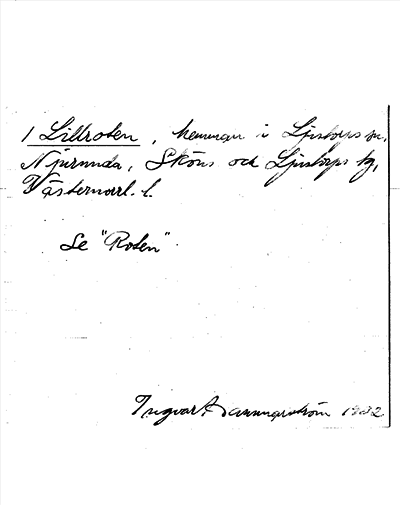 1 Lillroten, hemman i Ljustorps sn,
Njurunda, Sköns och Ljustorps tg,
Västernorrl. l.
Se "Roten".
Ingvar 1932